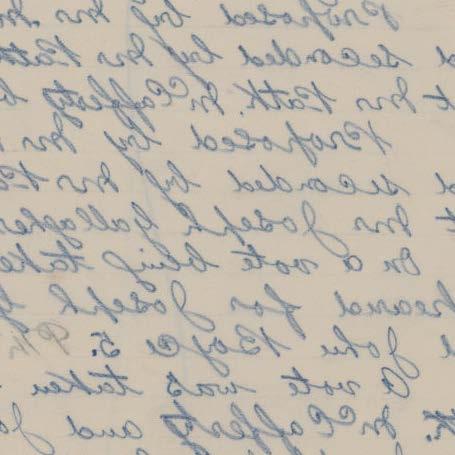 Proposed by Mr
seconded by Mr Patk
Mr Patk. McCafferty
Proposed by Mr
seconded by Mr
Mr Joseph Gallagher
On a vote being take
heard for Joseph
John Boyce 5.
A vote was taken
McCafferty and